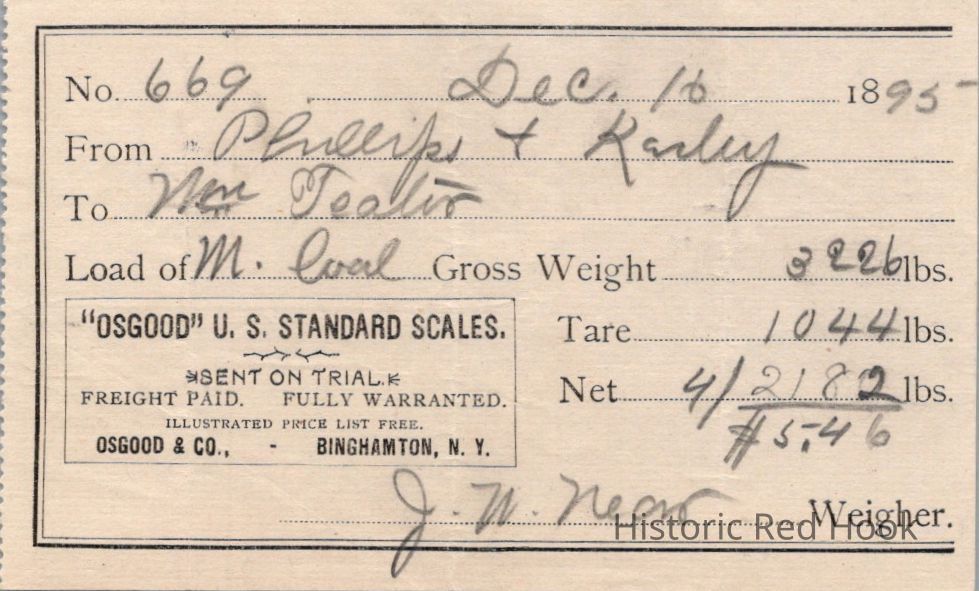 No. 669 Dec. 16 1895
From Phillips + Karley
To Wm Teator
Load of M. Coal Gross Weight 3226 lbs.
"OSGOOD" U. S. STANDARD SCALES.
SENT ON TRIAL.
FREIGHT PAID. FULLY WARRANTED.
ILLUSTRATED PRICE LIST FREE.
OSGOOD & CO., - BINGHAMTON, N. Y.
Tare 1044 lbs.
Net 4/ 2182 lbs.
$5.46
J. W. Near Weigher.
Historic Red Hook